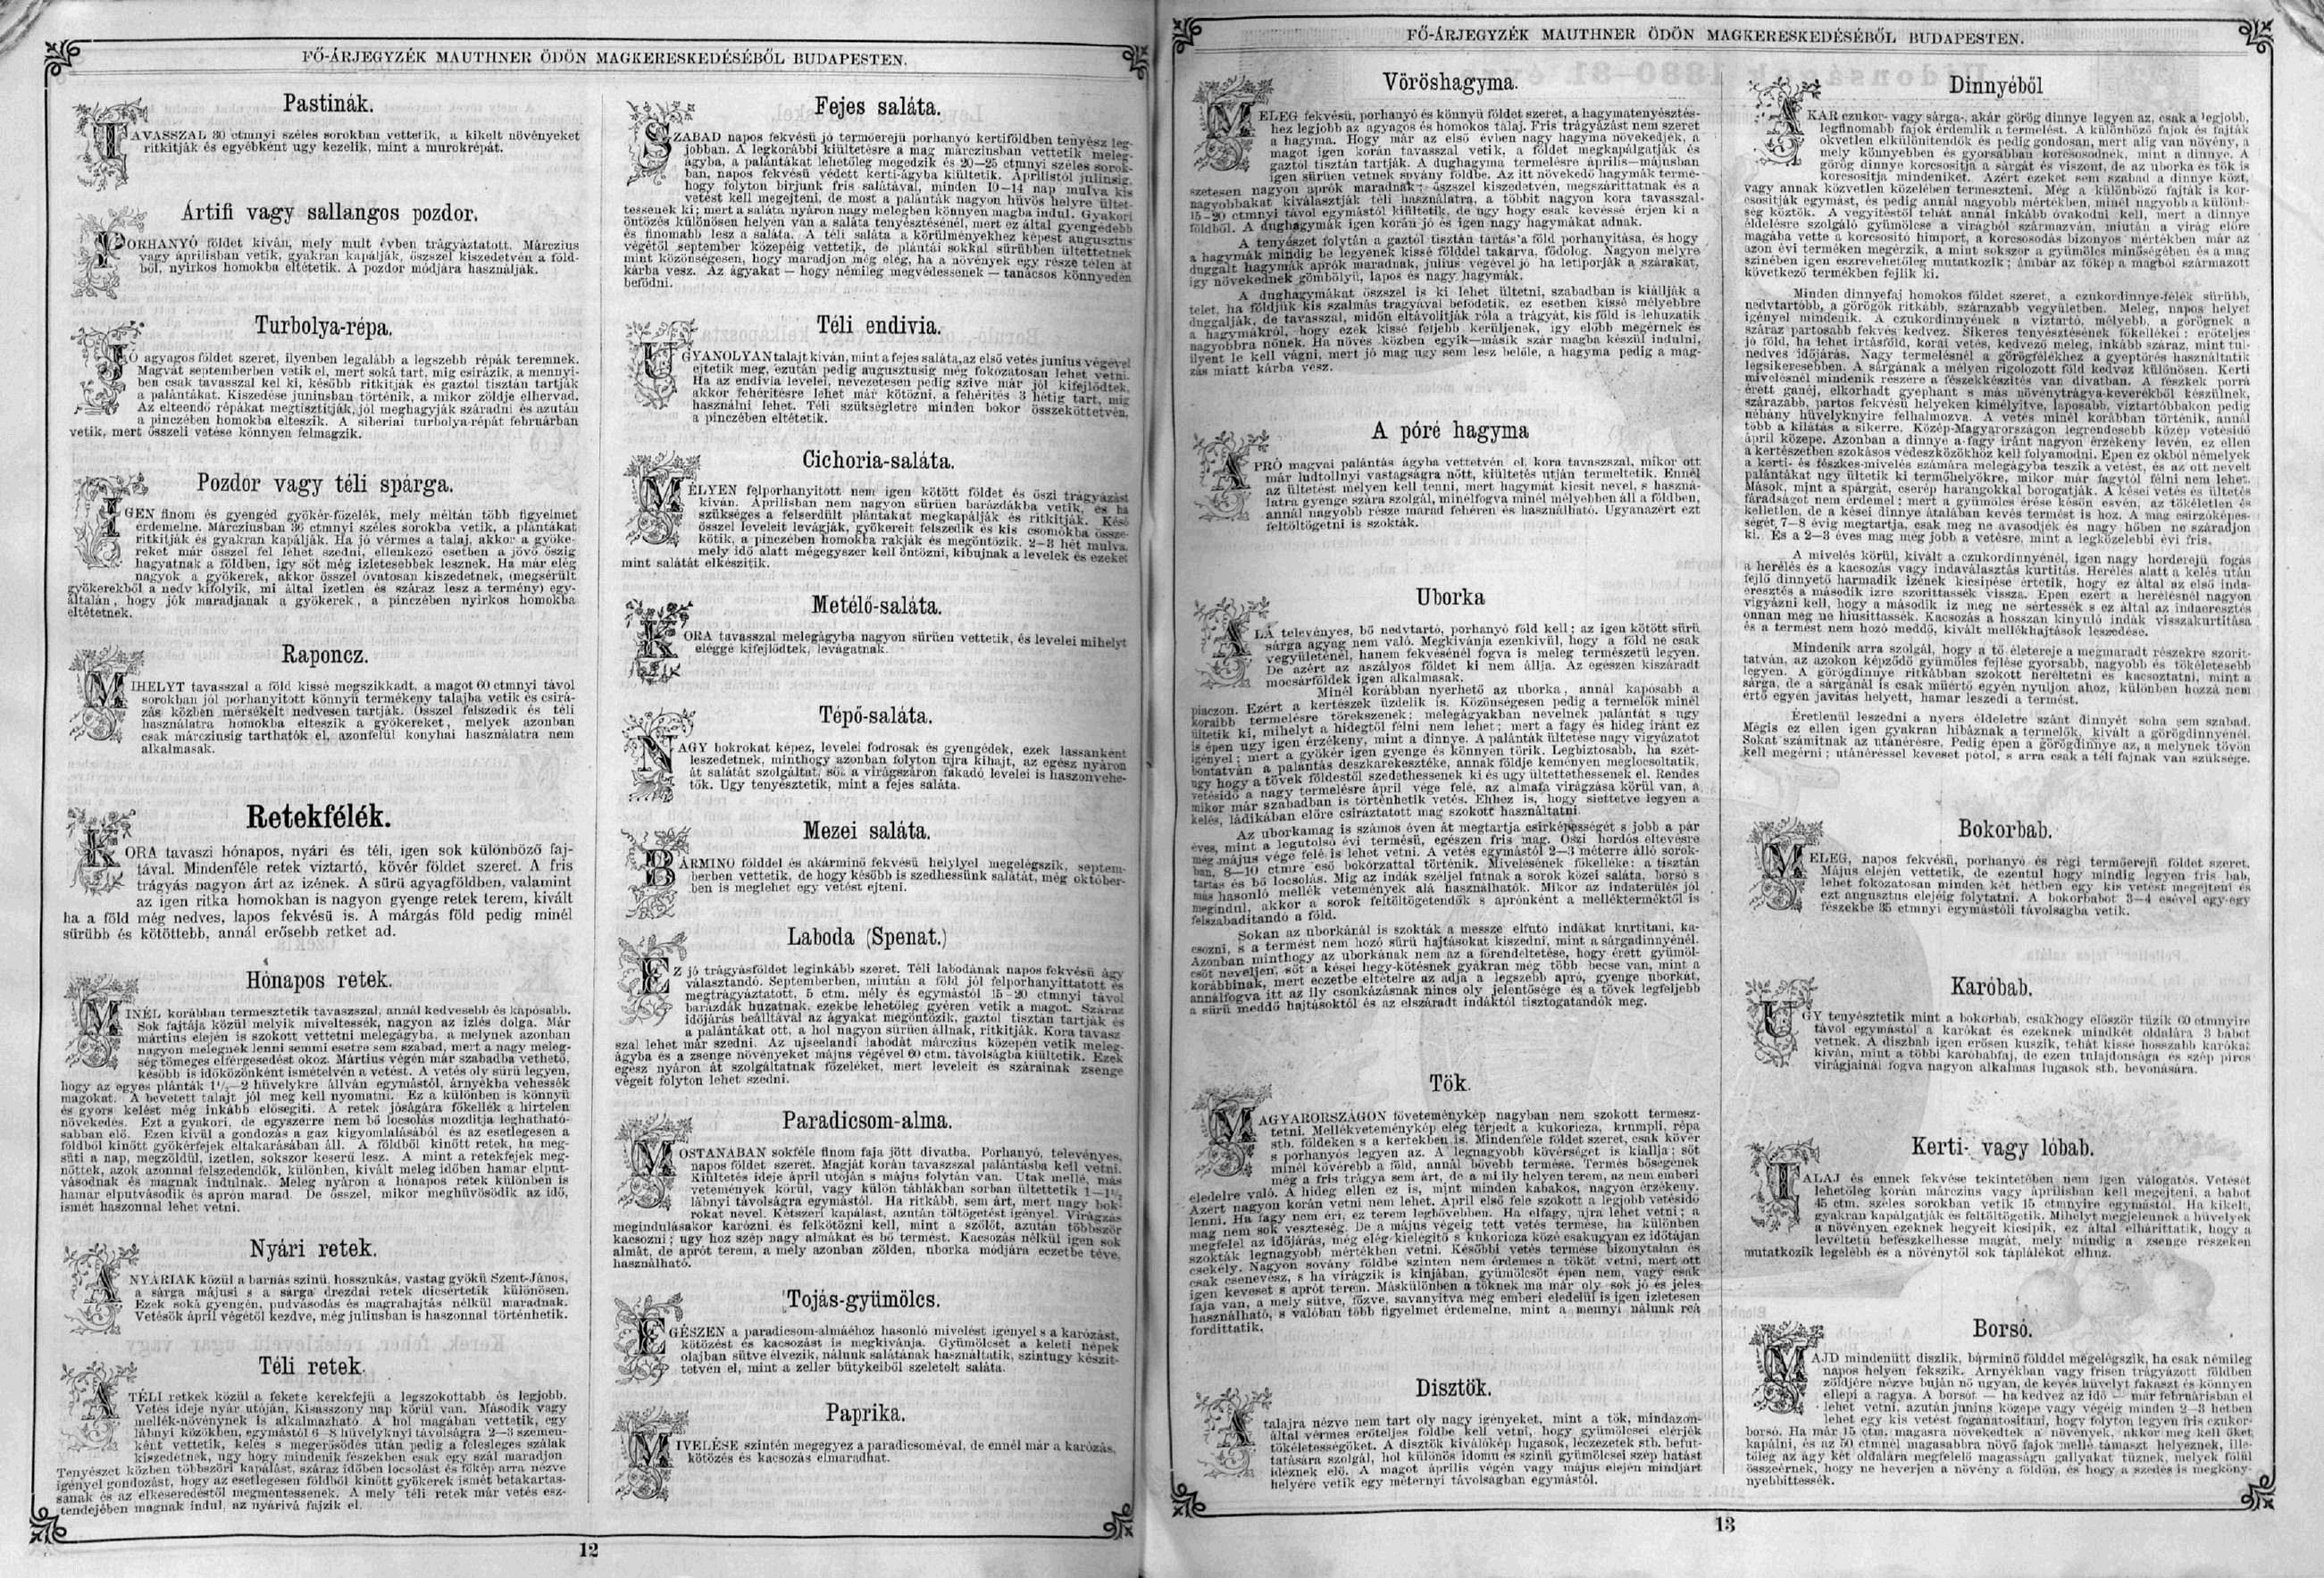 FŐ-ÁRJEGYZÉK MAUTHNER ÖDÖN MAGKERESKEDÉSÉBŐL BUDAPESTEN.
Pastinák.
TAVASSZAL 30 ctmnyi széles sorokban vettetik, a kikelt növényeket
ritkitják és egyébként ugy kezelik, mint a murokrépát.
Ártifi vagy sallangos pozdor.
PORHANYÓ földet kiván, mely mult évben trágyáztatott. Márczius
vagy áprilisban vetik, gyakran kapálják, őszszel kiszedetvén a föld-
ből, nyirkos homokba eltétetik. A pozdor módjára használják.
Turbolya-répa.
JÓ agyagos földet szeret, ilyenben legalább a legszebb répák teremnek.
Magvát septemberben vetik el, mert soká tart, mig csirázik, a mennyi-
ben csak tavasszal kel ki, később ritkitják és gaztól tisztán tartják
a palántákat. Kiszedése juniusban történik, a mikor zöldje elhervad.
Az elteendő répákat megtisztitják, jól meghagyják száradni és azután
a pinczében homokba elteszik. A siberiai turbolya-répát februárban
vetik, mert összeli vetése könnyen felmagzik.
Pozdor vagy téli spárga.
IGEN finom és gyengéd gyökér-főzelék, mely méltán több figyelmet
érdemelne. Márcziusban 36 ctmnyi széles sorokba vetik, a plántákat
ritkitják és gyakran kapálják. Ha jó vérmes a talaj, akkor a gyöke-
reket már ősszel fel lehet szedni, ellenkező esetben a jövő őszig
hagyatnak a földben, igy sőt még izletesebbek lesznek. Ha már elég
nagyok a gyökerek, akkor ősszel óvatosan kiszedetnek, (megsérült
gyökerekből a nedv kifolyik, mi által izetlen és száraz lesz a termény) egy-
általán, hogy jók maradjanak a gyökerek, a pinczében nyirkos homokba
eltétetnek.
Raponcz.
MIHELYT tavasszal a föld kissé megszikkadt, a magot 60 ctmnyi távol
sorokban jól porhanyitott könnyü termékeny talajba vetik és csirá-
zás közben mérsékelt nedvesen tartják. Ősszel felszedik és téli
használatra homokba elteszik a gyökereket, melyek azonban
csak márcziusig tarthatók el, azonfelül konyhai használatra nem
alkalmasak.
Retekfélék.
KORA tavaszi hónapos, nyári és téli, igen sok különböző faj-
tával. Mindenféle retek viztartó, kövér földet szeret. A fris
trágyás nagyon árt az izének. A sürü agyagföldben, valamint
az igen ritka homokban is nagyon gyenge retek terem, kivált
ha a föld még nedves, lapos fekvésü is. A márgás föld pedig minél
sürübb és kötöttebb, annál erősebb retket ad.
Hónapos retek.
MINÉL korábban termesztetik tavaszszal, annál kedvesebb és kapósabb.
Sok fajtája közül melyik miveltessék, nagyon az izlés dolga. Már
mártius elején is szokott vettetni melegágyba, a melynek azonban
nagyon melegnek lenni semmi esetre sem szabad, mert a nagy meleg-
ség tömeges elférgesedést okoz. Mártius végén már szabadba vethető,
később is időközönként ismételvén a vetést. A vetés oly sürü legyen,
hogy az egyes plánták 1½—2 hüvelykre állván egymástól, árnyékba vehessék
magokat. A bevetett talajt jól meg kell nyomatni. Ez a különben is könnyü
és gyors kelést még inkább elősegiti. A retek jóságára főkellék a hirtelen
növekedés. Ezt a gyakori, de egyszerre nem bő locsolás mozditja leghatható-
sabban elő. Ezen kivül a gondozás a gaz kigyomlalásából és az esetlegesen a
földből kinőtt gyökérfejek eltakarásában áll. A földből kinőtt retek, ha meg-
süti a nap, megzöldül, izetlen, sokszor keserü lesz. A mint a retekfejek meg-
nőttek, azok azonnal felszedendők, különben, kivált meleg időben hamar elput-
vásodnak és magnak indulnak. Meleg nyáron a hónapos retek különben is
hamar elputvásodik és aprón marad. De ősszel, mikor meghüvösödik az idő,
ismét haszonnal lehet vetni.
Nyári retek.
A NYÁRIAK közül a barnás szinü, hosszukás, vastag gyökü Szent-János,
a sárga májusi s a sárga drezdai retek dicsértetik különösen.
Ezek soká gyengén, pudvásodás és magrahajtás nélkül maradnak.
Vetésök ápril végétől kezdve, még juliusban is haszonnal történhetik.
Téli retek.
A TÉLI retkek közül a fekete kerekfejü a legszokottabb és legjobb.
Vetés ideje nyár utóján, Kisasszony nap körül van. Második vagy
mellék-növénynek is alkalmazható. A hol magában vettetik, egy
lábnyi közökben, egymástól 6—8 hüvelyknyi távolságra 2—3 szemen-
ként vettetik, kelés s megerősödés után pedig a felesleges szálak
kiszedetnek, ugy hogy mindenik fészekben csak egy szál maradjon
Tenyészet közben többszöri kapálást, száraz időben locsolást és főkép arra nézve
igényel gondozást, hogy az esetlegesen földből kinőtt gyökerek ismét betakartas-
sanak és az elkeseredéstől megmentessenek. A mely téli retek már vetés esz-
tendejében magnak indul, az nyárivá fajzik el.
Fejes saláta.
SZABAD napos fekvésü jó termőerejü porhanyó kertiföldben tenyész leg-
jobban. A legkorábbi kiültetésre a mag márcziusban vettetik meleg-
ágyba, a palántákat lehetőleg megedzik és 20—25 ctmnyi széles sorok-
ban, napos fekvésü védett kerti-ágyba kiültetik. Áprilistól juliusig,
hogy folyton birjunk fris salátával, minden 10—14 nap mulva kis
vetést kell megejteni, de most a palánták nagyon hüvös helyre ültet-
tessenek ki; mert a saláta nyáron nagy melegben könnyen magba indul. Gyakori
öntözés különösen helyén van a saláta tenyésztésénél, mert ez által gyengédebb
és finomabb lesz a saláta. A téli saláta a körülményekhez képest augusztus
végétől september közepéig vettetik, de plántái sokkal sürübben ültettetnek
mint közönségesen, hogy maradjon még elég, ha a növények egy része télen át
kárba vesz. Az ágyakat — hogy némileg megvédessenek — tanácsos könnyeden
befödni.
Téli endivia.
UGYANOLYAN talajt kiván, mint a fejes saláta, az első vetés junius végével
ejtetik meg, ezután pedig augusztusig még fokozatosan lehet vetni.
Ha az endivia levelei, nevezetesen pedig szive már jól kifejlődtek,
akkor fehéritésre lehet már kötözni, a fehérités 3 hétig tart, mig
használni lehet. Téli szükségletre minden bokor összeköttetvén,
a pinczében eltétetik.
Cichoria-saláta.
MÉLYEN felporhanyitott nem igen kötött földet és őszi trágyázást
kiván. Áprilisban nem nagyon sürüen barázdákba vetik, és ha
szükséges a felserdült plántákat megkapálják és ritkitják. Késő
ősszel leveleit levágják, gyökereit felszedik és kis csomókba össze-
kötik, a pinczében homokba rakják és megöntözik. 2—3 hét mulva,
mely idő alatt mégegyszer kell öntözni, kibujnak a levelek és ezeket
mint salátát elkészitik.
Metélő-saláta.
KORA tavasszal melegágyba nagyon sürüen vettetik, és levelei mihelyt
eléggé kifejlődtek, levágatnak.
Tépő-saláta.
NAGY bokrokat képez, levelei fodrosak és gyengédek, ezek lassanként
leszedetnek, minthogy azonban folyton ujra kihajt, az egész nyáron
át salátát szolgáltat, sőt a virágszáron fakadó levelei is haszonvehe-
tők. Ugy tenyésztetik, mint a fejes saláta.
Mezei saláta.
BÁRMINŐ földdel és akárminő fekvésü helylyel megelégszik, septem-
berben vettetik, de hogy később is szedhessünk salátát, még október-
ben is meglehet egy vetést ejteni.
Laboda (Spenat.)
EZ jó trágyásföldet leginkább szeret. Téli labodának napos fekvésü ágy
választandó. Septemberben, miután a föld jól felporhanyittatott és
megtrágyáztatott, 5 ctm. mély és egymástól 15—20 ctmnyi távol
barázdák huzatnak, ezekbe lehetőleg gyéren vetik a magot. Száraz
időjárás beálltával az ágyakat megöntözik, gaztól tisztán tartják és
a palántákat ott, a hol nagyon sürüen állnak, ritkitják. Kora tavasz
szal lehet már szedni. Az ujseelandi labodát márczius közepén vetik meleg-
ágyba és a zsenge növényeket május végével 60 ctm. távolságba kiültetik. Ezek
egész nyáron át szolgáltatnak főzeléket, mert leveleit és szárainak zsenge
végeit folyton lehet szedni.
Paradicsom-alma.
MOSTANÁBAN sokféle finom faja jött divatba. Porhanyó, televényes,
napos földet szeret. Magját korán tavaszszal palántásba kell vetni.
Kiültetés ideje ápril utóján s május folytán van. Utak mellé, más
vetemények körül, vagy külön táblákban sorban ültettetik 1—1½
lábnyi távolságra egymástól. Ha ritkább, sem árt, mert nagy bok-
rokat nevel. Kétszeri kapálást, azután töltögetést igényel. Virágzás
megindulásakor karózni és felkötözni kell, mint a szőlőt, azután többször
kacsozni; ugy hoz szép nagy almákat és bő termést. Kacsozás nélkül igen sok
almát, de aprót terem, a mely azonban zölden, uborka módjára eczetbe téve,
használható.
Tojás-gyümölcs.
EGÉSZEN a paradicsom-almáéhoz hasonló mivelést igényel s a karózást,
kötözést és kacsozást is megkivánja. Gyümölcsét a keleti népek
olajban sütve élvezik, nálunk salátának használtatik, szintugy készit-
tetvén el, mint a zeller bütykeiből szeletelt saláta.
Paprika.
MIVELÉSE szintén megegyez a paradicsoméval, de ennél már a karózás,
kötözés és kacsozás elmaradhat.
12
FŐ-ÁRJEGYZÉK MAUTHNER ÖDÖN MAGKERESKEDÉSÉBŐL BUDAPESTEN.
Vöröshagyma.
MELEG fekvésü, porhanyó és könnyü földet szeret, a hagymatenyésztés-
hez legjobb az agyagos és homokos talaj. Fris trágyázást nem szeret
a hagyma. Hogy már az első évben nagy hagyma növekedjék, a
magot igen korán tavasszal vetik, a földet megkapálgatják és
gaztól tisztán tartják. A dughagyma termelésre április—májusban
igen sürüen vetnek sovány földbe. Az itt növekedő hagymák termé-
szetesen nagyon aprók maradnak; őszszel kiszedetvén, megszárittatnak és a
nagyobbakat kiválasztják téli használatra, a többit nagyon kora tavaszszal
15—20 ctmnyi távol egymástól kiültetik, de ugy hogy csak kevéssé érjen ki a
földből. A dughagymák igen korán jó és igen nagy hagymákat adnak.
A tenyészet folytán a gaztól tisztán tartás a föld porhanyitása, és hogy
a hagymák mindig be legyenek kissé földdel takarva, fődolog. Nagyon melyre
duggalt hagymák aprók maradnak, julius végével jó ha letiporják a szárakat,
igy növekednek gömbölyü, lapos és nagy hagymák.
A dughagymákat öszszel is ki lehet ültetni, szabadban is kiállják a
telet, ha földjük kis szalmás trágyával befödetik, ez esetben kissé mélyebbre
duggalják, de tavasszal, midőn eltávolitják róla a trágyát, kis föld is lehuzatik
a hagymákról, hogy ezek kissé feljebb kerüljenek, igy előbb megérnek és
nagyobbra nőnek. Ha növés közben egyik—másik szár magba készül indulni,
ilyent le kell vágni, mert jó mag ugy sem lesz belőle, a hagyma pedig a mag-
zás miatt kárba vesz.
A póré hagyma
APRÓ magvai palántás ágyba vettetvén el, kora tavaszszal, mikor ott
már ludtollnyi vastagságra nőtt, kiültetés utján termeltetik. Ennél
az ültetést mélyen kell tenni, mert hagymát kicsit nevel, s haszná-
latra gyenge szára szolgál, minélfogva minél mélyebben áll a földben,
annál nagyobb része marad fehéren és használható. Ugyanazért ezt
feltöltögetni is szokták.
Uborka
ALÁ televényes, bő nedvtartó, porhanyó föld kell; az igen kötött sürü
sárga agyag nem való. Megkivánja ezenkivül, hogy a föld ne csak
vegyületénél, hanem fekvésénél fogva is meleg természetü legyen.
De azért az aszályos földet ki nem állja. Az egészen kiszáradt
mocsárföldek igen alkalmasak.
Minél korábban nyerhető az uborka, annál kapósabb a
piaczon. Ezért a kertészek üzdelik is. Közönségesen pedig a termelők minél
koraibb termelésre törekszenek; melegágyakban nevelnek palántát s ugy
ültetik ki, mihelyt a hidegtől félni nem lehet; mert a fagy és hideg iránt ez
is épen ugy igen érzékeny, mint a dinnye. A palánták ültetése nagy vigyázatot
igényel; mert a gyökér igen gyenge és könnyen törik. Legbiztosabb, ha szét-
bontatván a palántás deszkarekesztéke, annak földje keményen meglocsoltatik,
ugy hogy a tövek földestől szedethessenek ki és ugy ültettethessenek el. Rendes
vetésidő a nagy termelésre ápril vége felé, az almafa virágzása körül van, a
mikor már szabadban is történhetik vetés. Ehhez is, hogy siettetve legyen a
kelés, ládikában előre csiráztatott mag szokott használtatni
Az uborkamag is számos éven át megtartja csirképességét s jobb a pár
éves, mint a legutolsó évi termésü, egészen fris mag. Őszi hordós eltevésre
még május vége felé is lehet vetni. A vetés egymástól 2—3 méterre álló sorok-
ban, 8—10 ctmre eső bokorzattal történik. Mivelésének főkelléke: a tisztán
tartás és bő locsolás. Mig az indák széljel futnak a sorok közei saláta, borsó s
más hasonló mellék vetemények alá használhatók. Mikor az indaterülés jól
megindul, akkor a sorok feltöltögetendők s apróként a mellékterméktől is
felszabaditandó a föld.
Sokan az uborkánál is szokták a messze elfutó indákat kurtitani, ka-
csozni, s a termést nem hozó sürü hajtásokat kiszedni, mint a sárgadinnyénél.
Azonban minthogy az uborkának nem az a főrendeltetése, hogy érett gyümöl-
csöt neveljen, sőt a kései hegy-kötésnek gyakran még több becse van, mint a
korábbinak, mert eczetbe eltételre az adja a legszebb apró, gyenge uborkát,
annálfogva itt az ily csonkázásnak nincs oly jelentősége és a tövek legfeljebb
a sürü meddő hajtásoktól és az elszáradt indáktól tisztogatandók meg.
Tök.
MAGYARORSZÁGON főveteménykép nagyban nem szokott termesz-
tetni. Mellékveteménykép elég terjedt a kukoricza, krumpli, répa
stb. földeken s a kertekben is. Mindenféle földet szeret, csak kövér
s porhanyós legyen az. A legnagyobb kövérséget is kiallja; sőt
minél kövérebb a föld, annál bővebb termése. Termés bőségének
még a fris trágya sem árt, de a mi ily helyen terem, az nem emberi
eledelre való. A hideg ellen ez is, mint minden kabakos, nagyon érzékeny.
Azért nagyon korán vetni nem lehet. April első fele szokott a legjobb vetésidő
lenni. Ha fagy nem éri, ez terem legbővebben. Ha elfagy, ujra lehet vetni; a
mag nem sok veszteség. De a május végeig tett vetés termése, ha különben
megfelel az időjárás, még elég kielégitő s kukoricza közé csakugyan ez időtájan
szokták legnagyobb mértékben vetni. Későbbi vetés termése bizonytalan és
csekély. Nagyon sovány földbe szinten nem érdemes a tököt vetni, mert ott
csak csenevész, s ha virágzik is kinjában, gyümölcsöt épen nem, vagy csak
igen keveset s aprót terem. Máskülönben a töknek ma már oly sok jó és jeles
faja van, a mely sütve, főzve, savanyitva még emberi eledelül is igen izletesen
használható, s valóban több figyelmet érdemelne, mint a mennyi nálunk reá
fordittatik.
Disztök.
A talajra nézve nem tart oly nagy igényeket, mint a tök, mindazon-
által vérmes erőteljes földbe kell vetni, hogy gyümölcsei elérjék
tökéletességöket. A disztök kiválókép lugasok, léczezetek stb. befut-
tatására szolgál, hol különös idomu és szinü gyümölcsei szép hatást
idéznek elő. A magot április végén vagy május elején mindjárt
helyére vetik egy méternyi távolságban egymástól.
Dinnyéből
AKÁR czukor- vagy sárga-, akár görög dinnye legyen az, csak a legjobb,
legfinomabb fajok érdemlik a termelést. A különböző fajok és fajták
okvetlen elkülönitendők és pedig gondosan, mert alig van növény, a
mely könnyebben és gyorsabban korcsosodnék, mint a dinnye. A
görög dinnye korcsositja a sárgát és viszont, de az uborka és tök is
korcsositja mindeniket. Azért ezeket sem szabad a dinnye közt,
vagy annak közvetlen közelében termeszteni. Még a különböző fajták is kor-
csositják egymást, és pedig annál nagyobb mértékben, minél nagyobb a különb-
ség köztök. A vegyitéstől tehát annál inkább óvakodni kell, mert a dinnye
éldelésre szolgáló gyümölcse a virágból származván, miután a virág előre
magába vette a korcsositó himport, a korcsosodás bizonyos mértékben már az
azon évi terméken megérzik, a mint sokszor a gyümölcs minőségében és a mag
szinében igen észrevehetőleg mutatkozik; ámbár az főkép a magból származott
következő termékben fejlik ki.
Minden dinnyefaj homokos földet szeret, a czukordinnye-félék sürübb,
nedvtartóbb, a görögök ritkább, szárazabb vegyületben. Meleg, napos helyet
igényel mindenik. A czukordinnyének a viztartó, mélyebb, a görögnek a
száraz partosabb fekvés kedvez. Sikeres tenyésztésének főkellékei: erőteljes
jó föld, ha lehet irtásföld, korai vetés, kedvező meleg, inkább száraz, mint tul-
nedves időjárás. Nagy termelésnél a görögfélékhez a gyeptörés használtatik
legsikeresebben. A sárgának a mélyen rigolozott föld kedvez különösen. Kerti
mivelésnél mindenik részere a fészekkészités van divatban. A fészkek porrá
érett ganéj, elkorhadt gyephant s más növénytrágya-keverékből készülnek,
szárazabb, partos fekvésü helyeken kimélyitve, laposabb, viztartóbbakon pedig
néhány hüvelyknyire felhalmozva. A vetés minél korábban történik, annál
több a kilátás a sikerre. Közép-Magyarországon legrendesebb közép vetésidő
ápril közepe. Azonban a dinnye a fagy iránt nagyon érzékeny levén, ez ellen
a kertészetben szokásos védeszközökhöz kell folyamodni. Epen ez okból némelyek
a kerti- és fészkes-mivelés számára melegágyba teszik a vetést, és az ott nevelt
palántákat ugy ültetik ki termőhelyökre, mikor már fagytól félni nem lehet.
Mások, mint a spárgát, cserép harangokkal borogatják. A kései vetés és ültetés
fáradságot nem érdemel; mert a gyümölcs érése későn esvén, az tökéletlen és
kelletlen, de a kései dinnye átalában kevés termést is hoz. A mag csirzóképes-
ségét 7—8 évig megtartja, csak meg ne avasodjék és nagy hőben ne száradjon
ki. És a 2—3 éves mag még jobb a vetésre, mint a legközelebbi évi fris.
A mivelés körül, kivált a czukordinnyénél, igen nagy horderejü fogás
a herélés és a kacsozás vagy indaválasztás kurtitás. Herélés alatt a kelés után
fejlő dinnyető harmadik izének kicsipése értetik, hogy ez által az első inda-
eresztés a második izre szorittassék vissza. Epen ezért a herélésnél nagyon
vigyázni kell, hogy a második iz meg ne sértessék s ez által az indaeresztés
onnan meg ne hiusittassék. Kacsozás a hosszan kinyuló indák visszakurtitása
és a termést nem hozó meddő, kivált mellékhajtások leszedése.
Mindenik arra szolgál, hogy a tő életereje a megmaradt részekre szorit-
tatván, az azokon képződő gyümölcs fejlése gyorsabb, nagyobb és tökéletesebb
legyen. A görögdinnye ritkábban szokott heréltetni és kacsoztatni, mint a
sárga, de a sárgánál is csak müértő egyén nyuljon ahoz, különben hozzá nem
értő egyén javitás helyett, hamar leszedi a termést.
Éretlenül leszedni a nyers éldeletre szánt dinnyét soha sem szabad.
Mégis ez ellen igen gyakran hibáznak a termelők, kivált a görögdinnyénél.
Sokat számitnak az utánérésre. Pedig épen a görögdinnye az, a melynek tövön
kell megérni; utánéréssel keveset pótol, s arra csak a téli fajnak van szüksége.
Bokorbab.
MELEG, napos fekvésü, porhanyó és régi termőerejü földet szeret.
Május elején vettetik, de ezentul hogy mindig legyen fris bab,
lehet fokozatosan minden két hétben egy kis vetést megejteni és
ezt augusztus elejéig folytatni. A bokorbabot 3—4 esével egy-egy
fészekbe 35 ctmnyi egymástóli távolságba vetik.
Karóbab.
UGY tenyésztetik mint a bokorbab, csakhogy először tüzik 60 ctmnyire
távol egymástól a karókat és ezeknek mindkét oldalára 3 babot
vetnek. A diszbab igen erősen kuszik, tehát kisse hosszabb karókat
kiván, mint a többi karóbabfaj, de ezen tulajdonsága és szép piros
virágjainál fogva nagyon alkalmas lugasok stb. bevonására.
Kerti- vagy lóbab.
TALAJ és ennek fekvése tekintetében nem igen válogatós. Vetését
lehetőleg korán márczius vagy áprilisban kell megejteni, a babot
45 ctm. széles sorokban vetik 15 ctmnyire egymástól. Ha kikelt,
gyakran kapálgatják és feltöltögetik. Mihelyt megjelennek a hüvelyek
a növényen ezeknek hegyeit kicsipik, ez által elhárittatik, hogy a
levéltetü befészkelhesse magát, mely mindig a zsenge részeken
mutatkozik legelébb és a növénytől sok táplálékot elhuz.
Borsó.
MAJD mindenütt diszlik, bárminő földdel megelégszik, ha csak némileg
napos helyen fekszik. Arnyékban vagy frisen trágyázott földben
zöldjére nézve buján nő ugyan, de kevés hüvelyt fakaszt és könnyen
ellepi a ragya. A borsót — ha kedvez az idő — már februárisban el
lehet vetni, azután junius közepe vagy végéig minden 2—3 hétben
lehet egy kis vetést foganatositani, hogy folyton legyen fris czukor-
borsó. Ha már 15 ctm. magasra növekedtek a növények, akkor meg kell őket
kapálni, és az 50 ctmnél magasabbra növő fajok mellé támaszt helyeznek, ille-
tőleg az ágy két oldalára megfelelő magasságu gallyakat tüznek, melyek fölül
összeérnek, hogy ne heverjen a növény a földön, és hogy a szedés is megköny-
nyebbittessék.
13